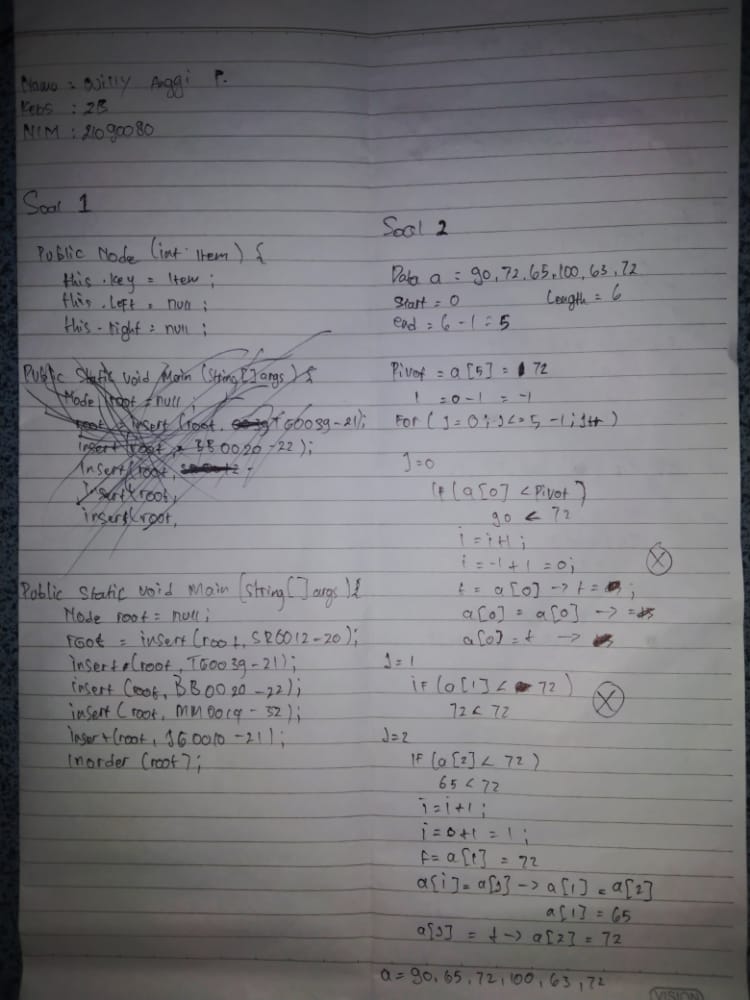 Nama : Willy Anggi P.
Kelas : 2B
NIM : 21090080
Soal 1
Public Node (int item) {
this.key = Item;
this.left = null;
this.right = null;
Public Static void Main (String[] args) {
Node root = null;
root = insert (root, TG0039-21);
insert (root, BB0020-22);
Insert (root,
Insert (root,
insert (root,
Public Static void Main (String[] args) {
Node root = null;
root = insert (root, SR6012-20);
insert (root, TG0039-21);
insert (root, BB0020-22);
insert (root, MM0019-32);
insert (root, JG0010-21);
Inorder (root);
Soal 2
Data a = 90, 72, 65, 100, 63, 72
Start = 0 Length = 6
end = 6 - 1 = 5
Pivot = a[5] = 72
i = 0 - 1 = -1
For (J=0; J<=5-1; J++)
J=0
if (a[0] < Pivot)
90 < 72
i = i+1;
i = -1 + 1 = 0;
t = a[0] -> t =
a[0] = a[0] -> =
a[0] = t ->
J=1
if (a[1] < 72)
72 < 72
J=2
IF (a[2] < 72)
65 < 72
i = i+1;
i = 0+1 = 1;
t = a[1] = 72
a[i] = a[j] -> a[1] = a[2]
a[1] = 65
a[j] = t -> a[2] = 72
a = 90, 65, 72, 100, 63, 72
VISION